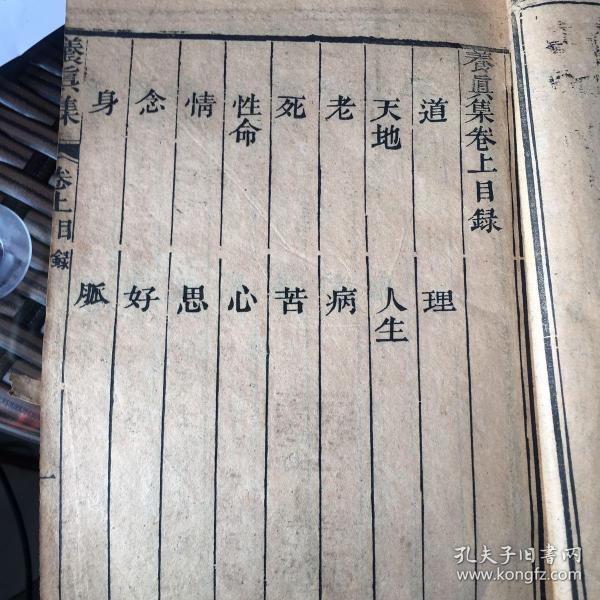 養眞集卷上目録
道 理
天地 人生
老 病
死 苦
性命 心
情 思
念 好
身 脈
養眞集 卷上目録 一
孔夫子旧书网
www.kongfz.com